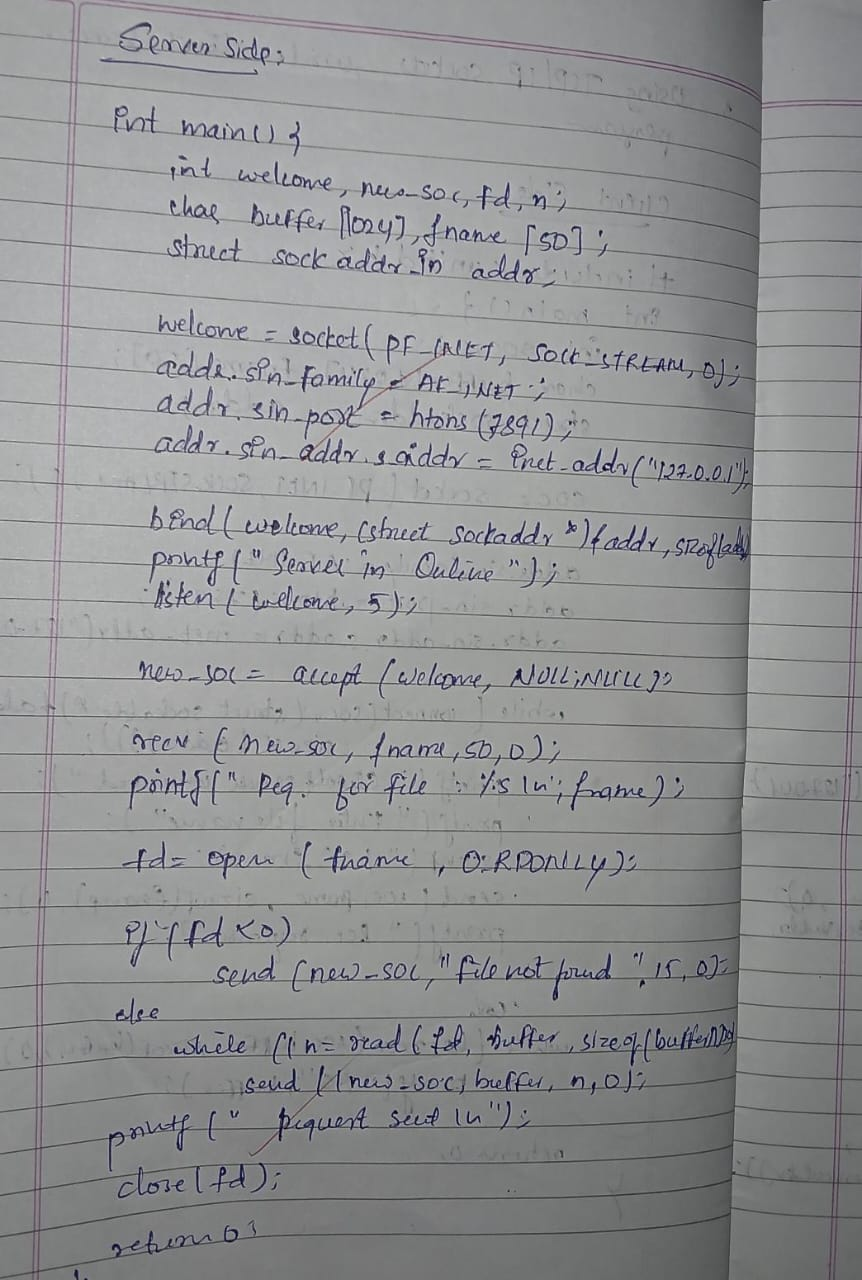 Server Side:
int main() {
int welcome, new_soc, fd, n;
char buffer [1024], fname [50];
struct sockaddr_in addr;
welcome = socket( PF_INET, SOCK_STREAM, 0);
addr.sin_family = AF_INET;
addr.sin_port = htons (7891);
addr.sin_addr.s_addr = inet_addr("127.0.0.1");
bind( welcome, (struct sockaddr *)&addr, sizeof(addr)
printf (" Server in Online ");
listen ( welcome, 5);
new_soc = accept (welcome, NULL, NULL);
recv ( new_soc, fname, 50, 0);
printf (" Req. for file : %s \n", fname);
fd = open ( fname, O_RDONLLY);
if (fd < 0)
send (new_soc, "file not found", 15, 0);
else
while ((n = read ( fd, buffer, sizeof(buffer)))>0)
send ((new_soc, buffer, n, 0);
printf (" Request sent \n");
close(fd);
return 0;